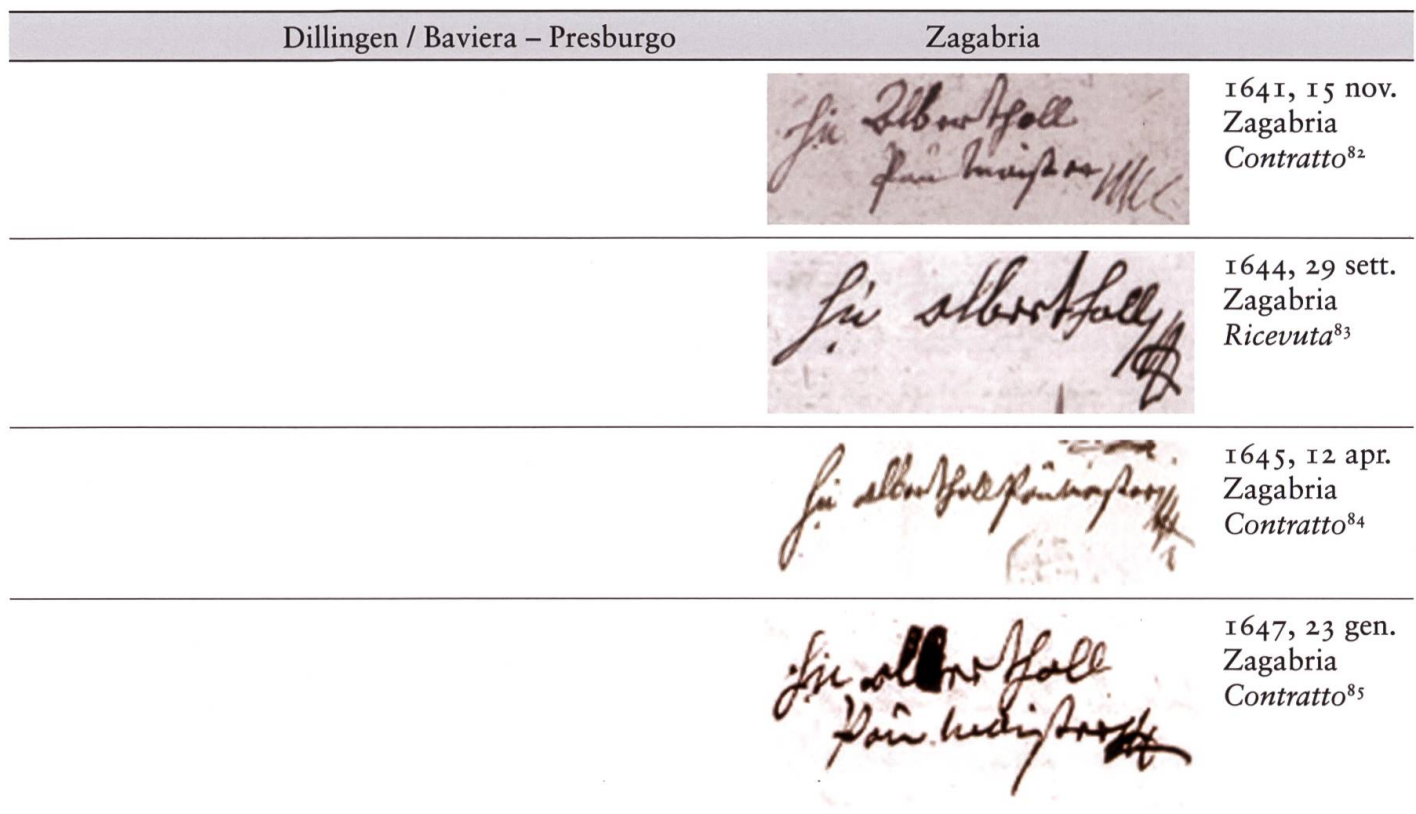 Dillingen / Baviera – Presburgo Zagabria
Alberthall
Pau Maister
1641, 15 nov.
Zagabria
Contratto⁸²
alberthall
1644, 29 sett.
Zagabria
Ricevuta⁸³
alberthall Paumaister
1645, 12 apr.
Zagabria
Contratto⁸⁴
Pau maister
1647, 23 gen.
Zagabria
Contratto⁸⁵